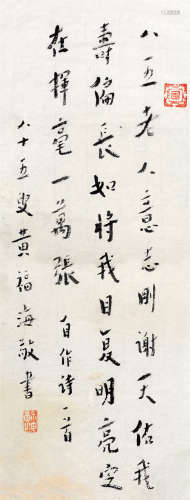 八五老人意志刚谢天佑我
寿倫长如将我目复明亮定
在挥毫一萬张
自作诗一首
八十五叟黄福海敬書